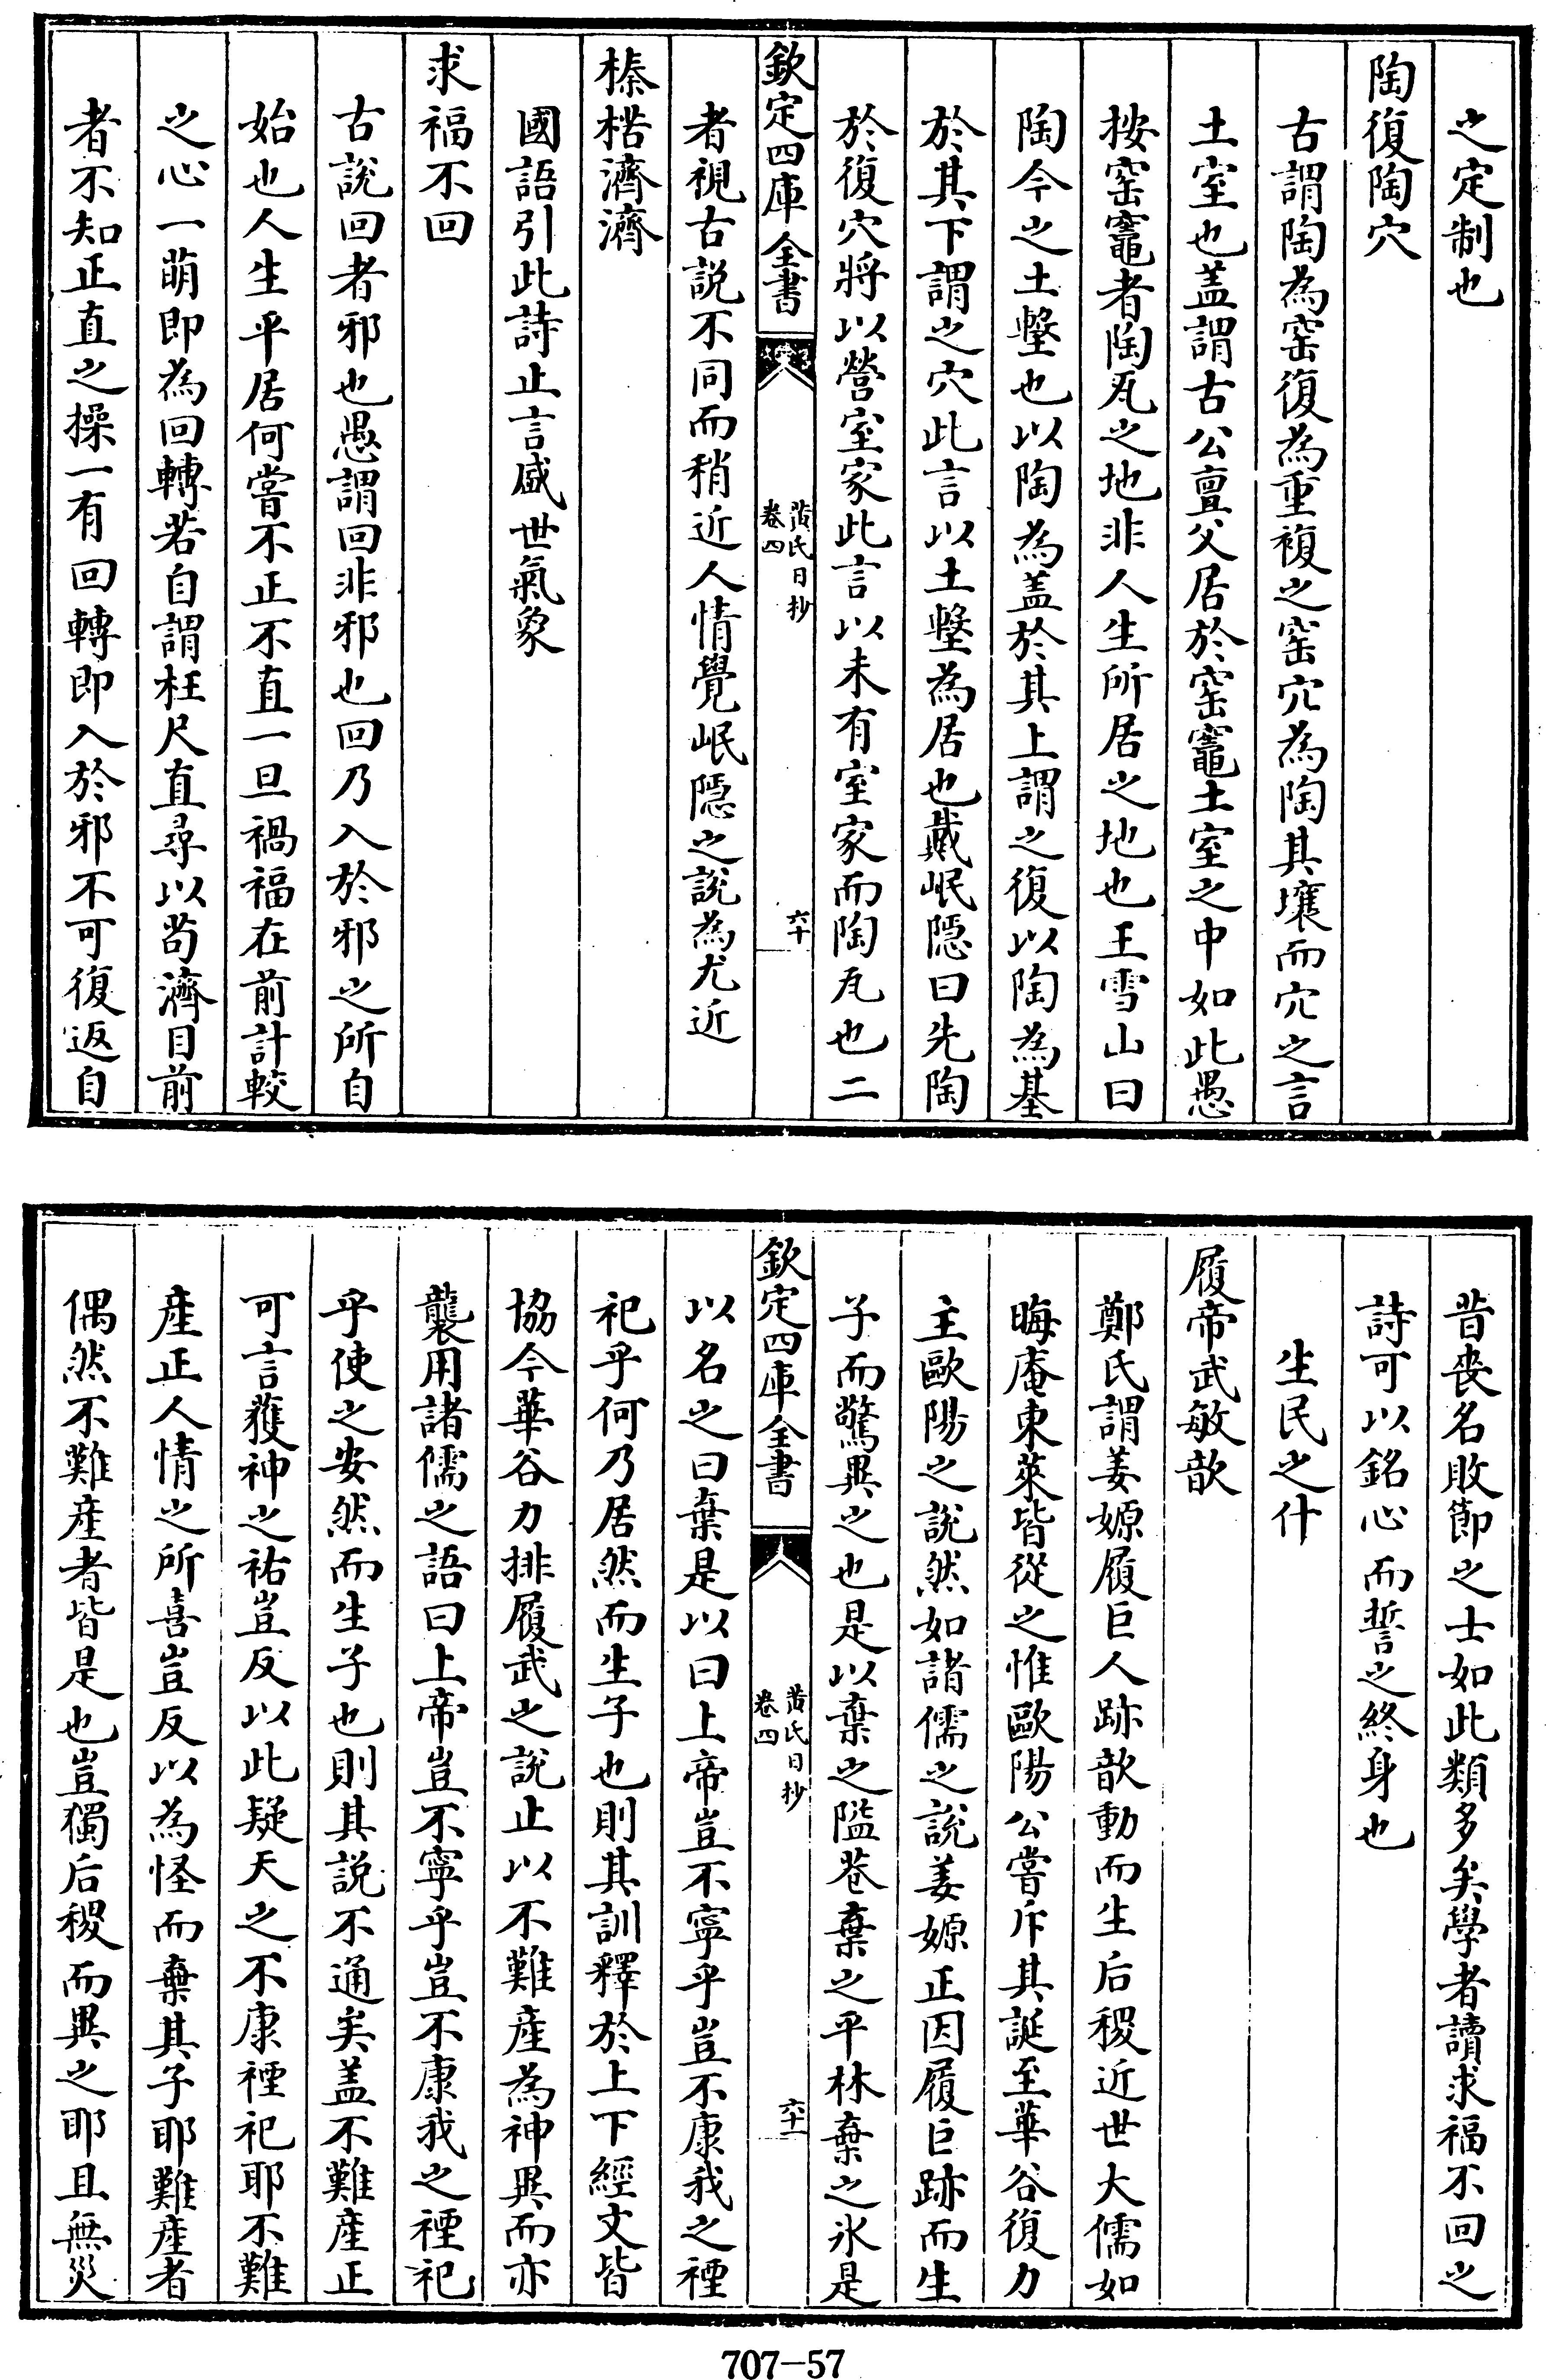 之定制也
陶復陶穴
古謂陶為窑復為重複之窑穴為陶其壤而穴之言
土室也盖謂古公亶父居於窑竈土室之中如此愚
按窑竈者陶瓦之地非人生所居之地也王雪山曰
陶今之土墼也以陶為盖於其上謂之復以陶為基
於其下謂之穴此言以土墼為居也戴岷隠曰先陶
於復穴將以營室家此言以未有室家而陶瓦也二
欽定四庫全書
黄氏日抄
卷四
六十
者視古説不同而稍近人情覺岷隠之說為尤近
榛楛濟濟
國語引此詩止言盛世氣象
求福不回
古說回者邪也愚謂回非邪也回乃入於邪之所自
始也人生平居何嘗不正不直一旦禍福在前計較
之心一萌即為回轉若自謂枉尺直尋以苟濟目前
者不知正直之操一有回轉即入於邪不可復返自
昔喪名敗節之士如此類多矣學者讀求福不回之
詩可以銘心而誓之終身也
生民之什
履帝武敏歆
鄭氏謂姜嫄履巨人跡歆動而生后稷近世大儒如
晦庵東萊皆從之惟歐陽公嘗斥其誕至華谷復力
主歐陽之說然如諸儒之說姜嫄正因履巨跡而生
子而驚異之也是以棄之隘巷棄之平林棄之氷是
欽定四庫全書
黄氏日抄
卷四
六十一
以名之曰棄是以曰上帝豈不寧乎豈不康我之禋
祀乎何乃居然而生子也則其訓釋於上下經文皆
協今華谷力排履武之說止以不難産為神異而亦
襲用諸儒之語曰上帝豈不寧乎豈不康我之禋祀
乎使之安然而生子也則其説不通矣盖不難產正
可言獲神之祐豈反以此疑天之不康禋祀耶不難
産正人情之所喜豈反以為怪而棄其子耶難産者
偶然不難産者皆是也豈獨后稷而異之耶且無災
707-57